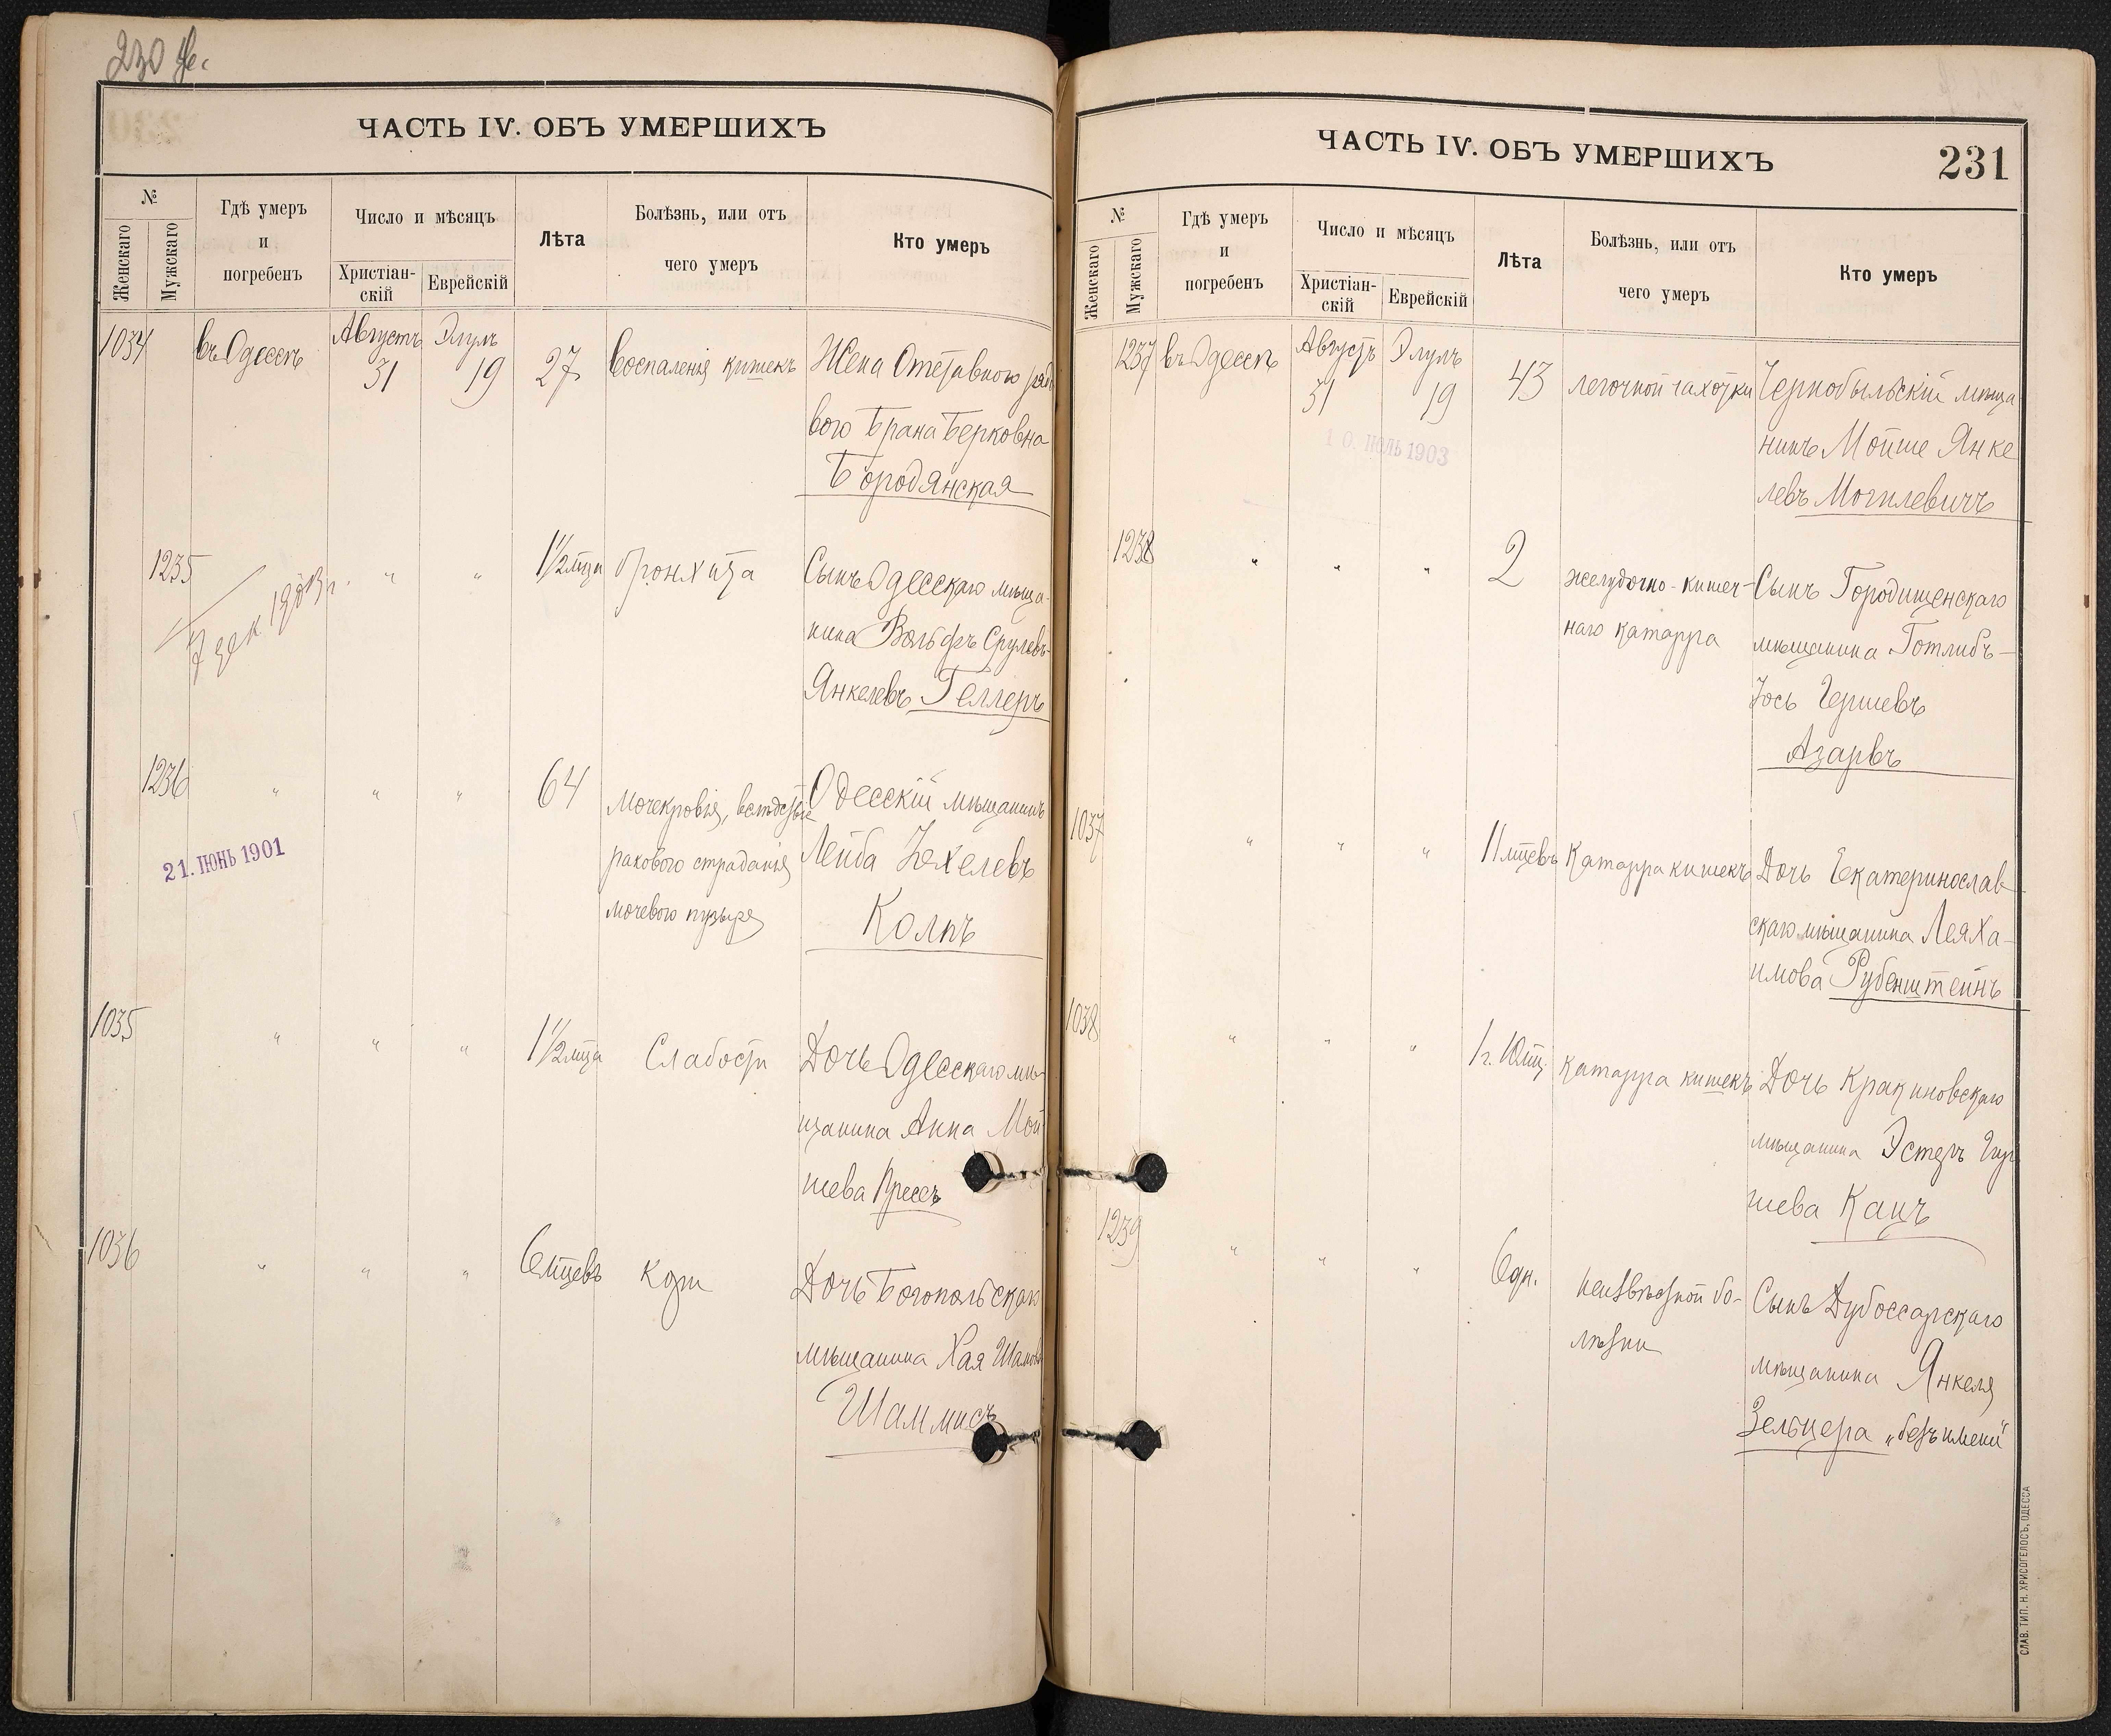 230 об.
ЧАСТЬ IV. ОБЪ УМЕРШИХЪ
№
Женскаго
Мужскаго
Гдѣ умеръ
и
погребенъ
Число и мѣсяцъ
Христіан-
скій
Еврейскій
Лѣта
Болѣзнь, или отъ
чего умеръ
Кто умеръ
1034 въ Одессѣ Августъ Элулъ
31 19 27 воспаленія кишекъ Жена Отставного рядо
вого Брана Берковна
Бородянская
1235 " " 1½ мца бронхита Сынъ Одесскаго мѣща-
нина Вольфъ Срулевъ-
Янкелевъ Геллеръ
7 дек 1903 г.
1236 " " " 64 мочекровія, вслѣдствіе Одесскій мѣщанинъ
раковаго страданія Лейба Іохелевъ
мочевого пузыря Колпъ
21. ІЮНЬ 1901
1035 " " " 1½ мца Слабости Дочь Одесскаго мѣ-
щанина Анна Мой
шева Прессъ
1036 " " " 6 мцевъ кори Дочь Богопольскаго
мѣщанина Хая Шамова
Шаммисъ
ЧАСТЬ IV. ОБЪ УМЕРШИХЪ
231
№
Женскаго
Мужскаго
Гдѣ умеръ
и
погребенъ
Число и мѣсяцъ
Христіан-
скій
Еврейскій
Лѣта
Болѣзнь, или отъ
чего умеръ
Кто умеръ
1237 въ Одессѣ Августъ Элулъ
31 19 43 легочной чахотки Чернобыльскій мѣща
нинъ Мойше Янке
левъ Могилевичъ
10. ІЮЛЬ 1903
1238 " " " 2 желудочно-кишеч- Сынъ Городищенскаго
наго катарра мѣщанина Готлибъ-
Іось Гершевъ
Азарвъ
1037 " " " 11 мцевъ Катарра кишекъ Дочь Екатеринослав-
скаго мѣщанина Лея Ха-
имова Рубенштейнъ
1038 " " " 1 г. 10 мц. катарра кишекъ Дочь Кракиновскаго
мѣщанина Эстеръ Гир
шева Кацъ
1239 " " " 6 дн. неизвѣстной бо- Сынъ Дубоссарскаго
лѣзни мѣщанина Янкеля
Зельцера „безъ имени"
СЛАВ. ТИП. Н. ХРИСОГЕЛОСЪ, ОДЕССА